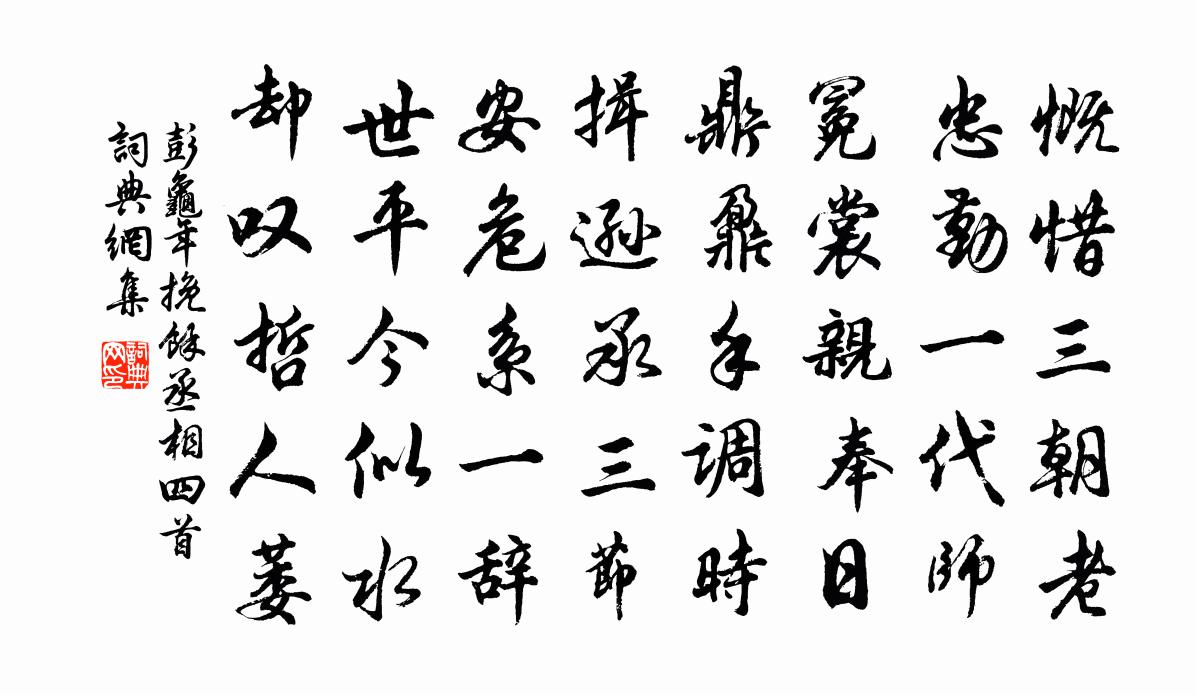 慨惜三朝老
忠勤一代师
冕裳親奉日
鼎鼐手调時
揖遜承三節
安危系一辞
世平今似水
却叹哲人萎
彭龜年挽餘丞相四首
詞典網集
詞典網印